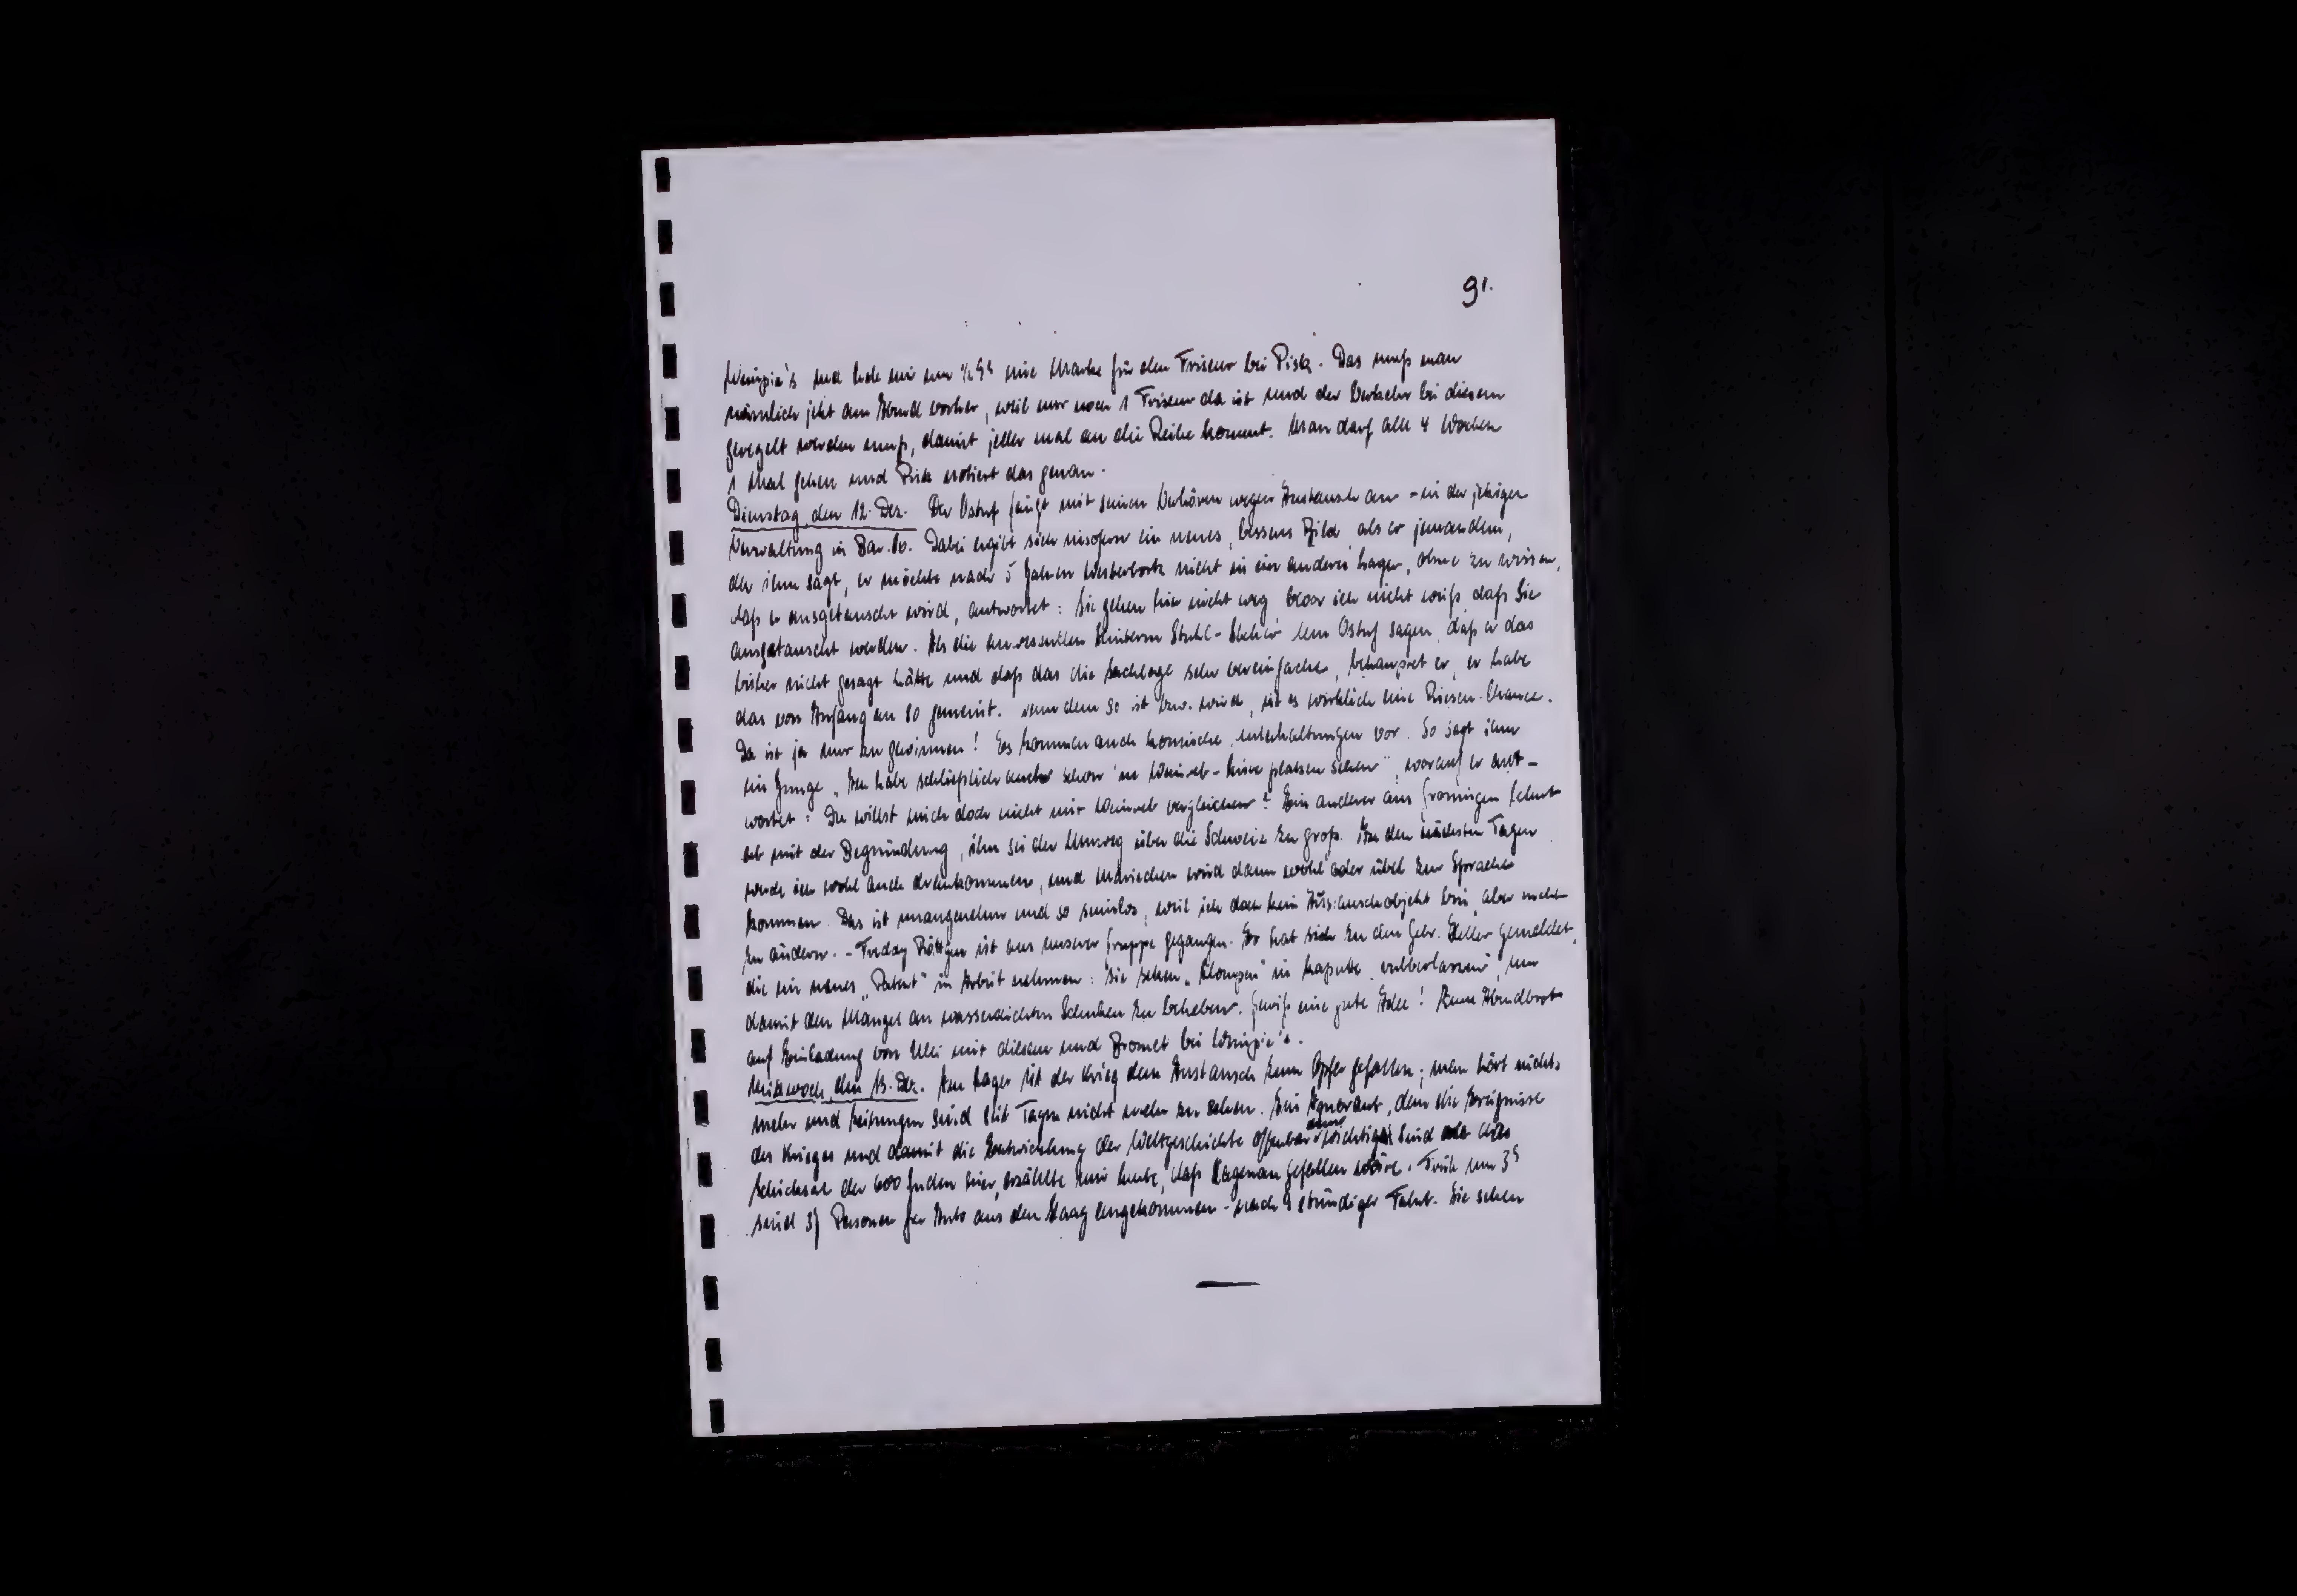 91.
Wempie's und hole mir um ½ 9h eine Marke für den Friseur bei Pisk. Das muß man
nämlich jetzt am Abend vorher, weil nur noch 1 Friseur da ist und der Verkehr bei diesem
geregelt werden muß, damit jeder mal an die Reihe kommt. Man darf alle 4 Wochen
1 Mal gehen und Pisk notiert das genau.
Dienstag, den 12. Dez. Der Ostuf fängt mit seinen Verhören wegen Austausch an - in der jetzigen
Verwaltung in Bar. 80. Dabei ergibt sich insofern ein neues, besseres Bild, als er jemandem,
der ihm sagt, er möchte nach 5 Jahren Westerbork nicht in ein anderes Lager, ohne zu wissen,
daß er ausgetauscht wird, antwortet: Sie gehen hier nicht weg bevor ich nicht weiß, daß Sie
ausgetauscht werden. Als die hinterm Stuhl- dem Ostuf sagen, daß er das
bisher nicht gesagt hätte und daß das die Sachlage sehr vereinfache, behauptet er, er habe
das von Anfang an so gemeint. Wenn dem so ist bzw. wird, ist es wirklich eine Riesen-Chance.
Da ist ja nur zu gewinnen! Es kommen auch komische Unterhaltungen vor. So sagt ihm
ein Junge „Ich habe schließlich auch schon 'ne Weinreb-Liste platzen sehen", worauf er ant-
wortet: Du willst mich doch nicht mit Weinreb vergleichen? Ein anderer aus Groningen lehnt
ab mit der Begründung, ihm sei der Umweg über die Schweiz zu groß. In den nächsten Tagen
werde ich wohl auch drankommen, und Mariechen wird dann wohl oder übel zur Sprache
kommen. Das ist unangenehm und so sinnlos, weil ich doch kein Austauschobjekt bin, aber nicht
zu ändern. - Freddy Röttgen ist aus unserer Gruppe gegangen. Er hat sich zu den Gebr. Heller gemeldet,
die ein neues „Patent" in Arbeit nehmen: Sie sehen „Klompen" in kaputte, um
damit den Mangel an wasserdichten Schuhen zu beheben. Gewiß eine gute Idee! Zum Abendbrot
auf Einladung von Ulli mit diesem und Bromet bei Wempie's.
Mittwoch, den 13. Dez. Im Lager ist der Krieg dem Austausch zum Opfer gefallen; man hört nichts
mehr und Zeitungen sind seit Tagen nicht mehr zu sehen. Ein Ignorant, dem die Ereignisse
des Krieges und damit die Entwicklung der Weltgeschichte offenbar sind als das
Schicksal der 600 Juden hier, erzählte mir heute, daß Hagenau gefallen wäre. Früh um 3h
sind 37 Personen per Auto aus den Haag angekommen - nach 9 stündiger Fahrt. Sie sehen